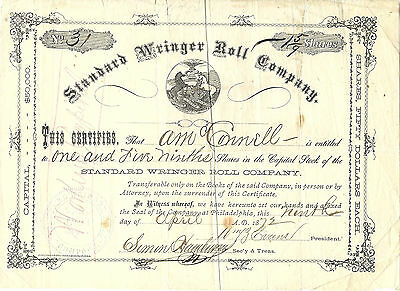 No. 31
1 5/9 Shares
Standard Wringer Roll Company.
CAPITAL, $50,000.
SHARES, FIFTY DOLLARS EACH.
THIS CERTIFIES, That A M Connell is entitled
to One and Five ninths Shares in the Capital Stock of the
STANDARD WRINGER ROLL COMPANY.
Transferable only on the Books of the said Company, in person or by
Attorney, upon the surrender of this Certificate.
In Witness whereof, we have hereunto set our hands and affixed
the Seal of the Company at Philadelphia, this Ninth
day of April A. D. 1872
President.
Simon
Sec'y & Treas.